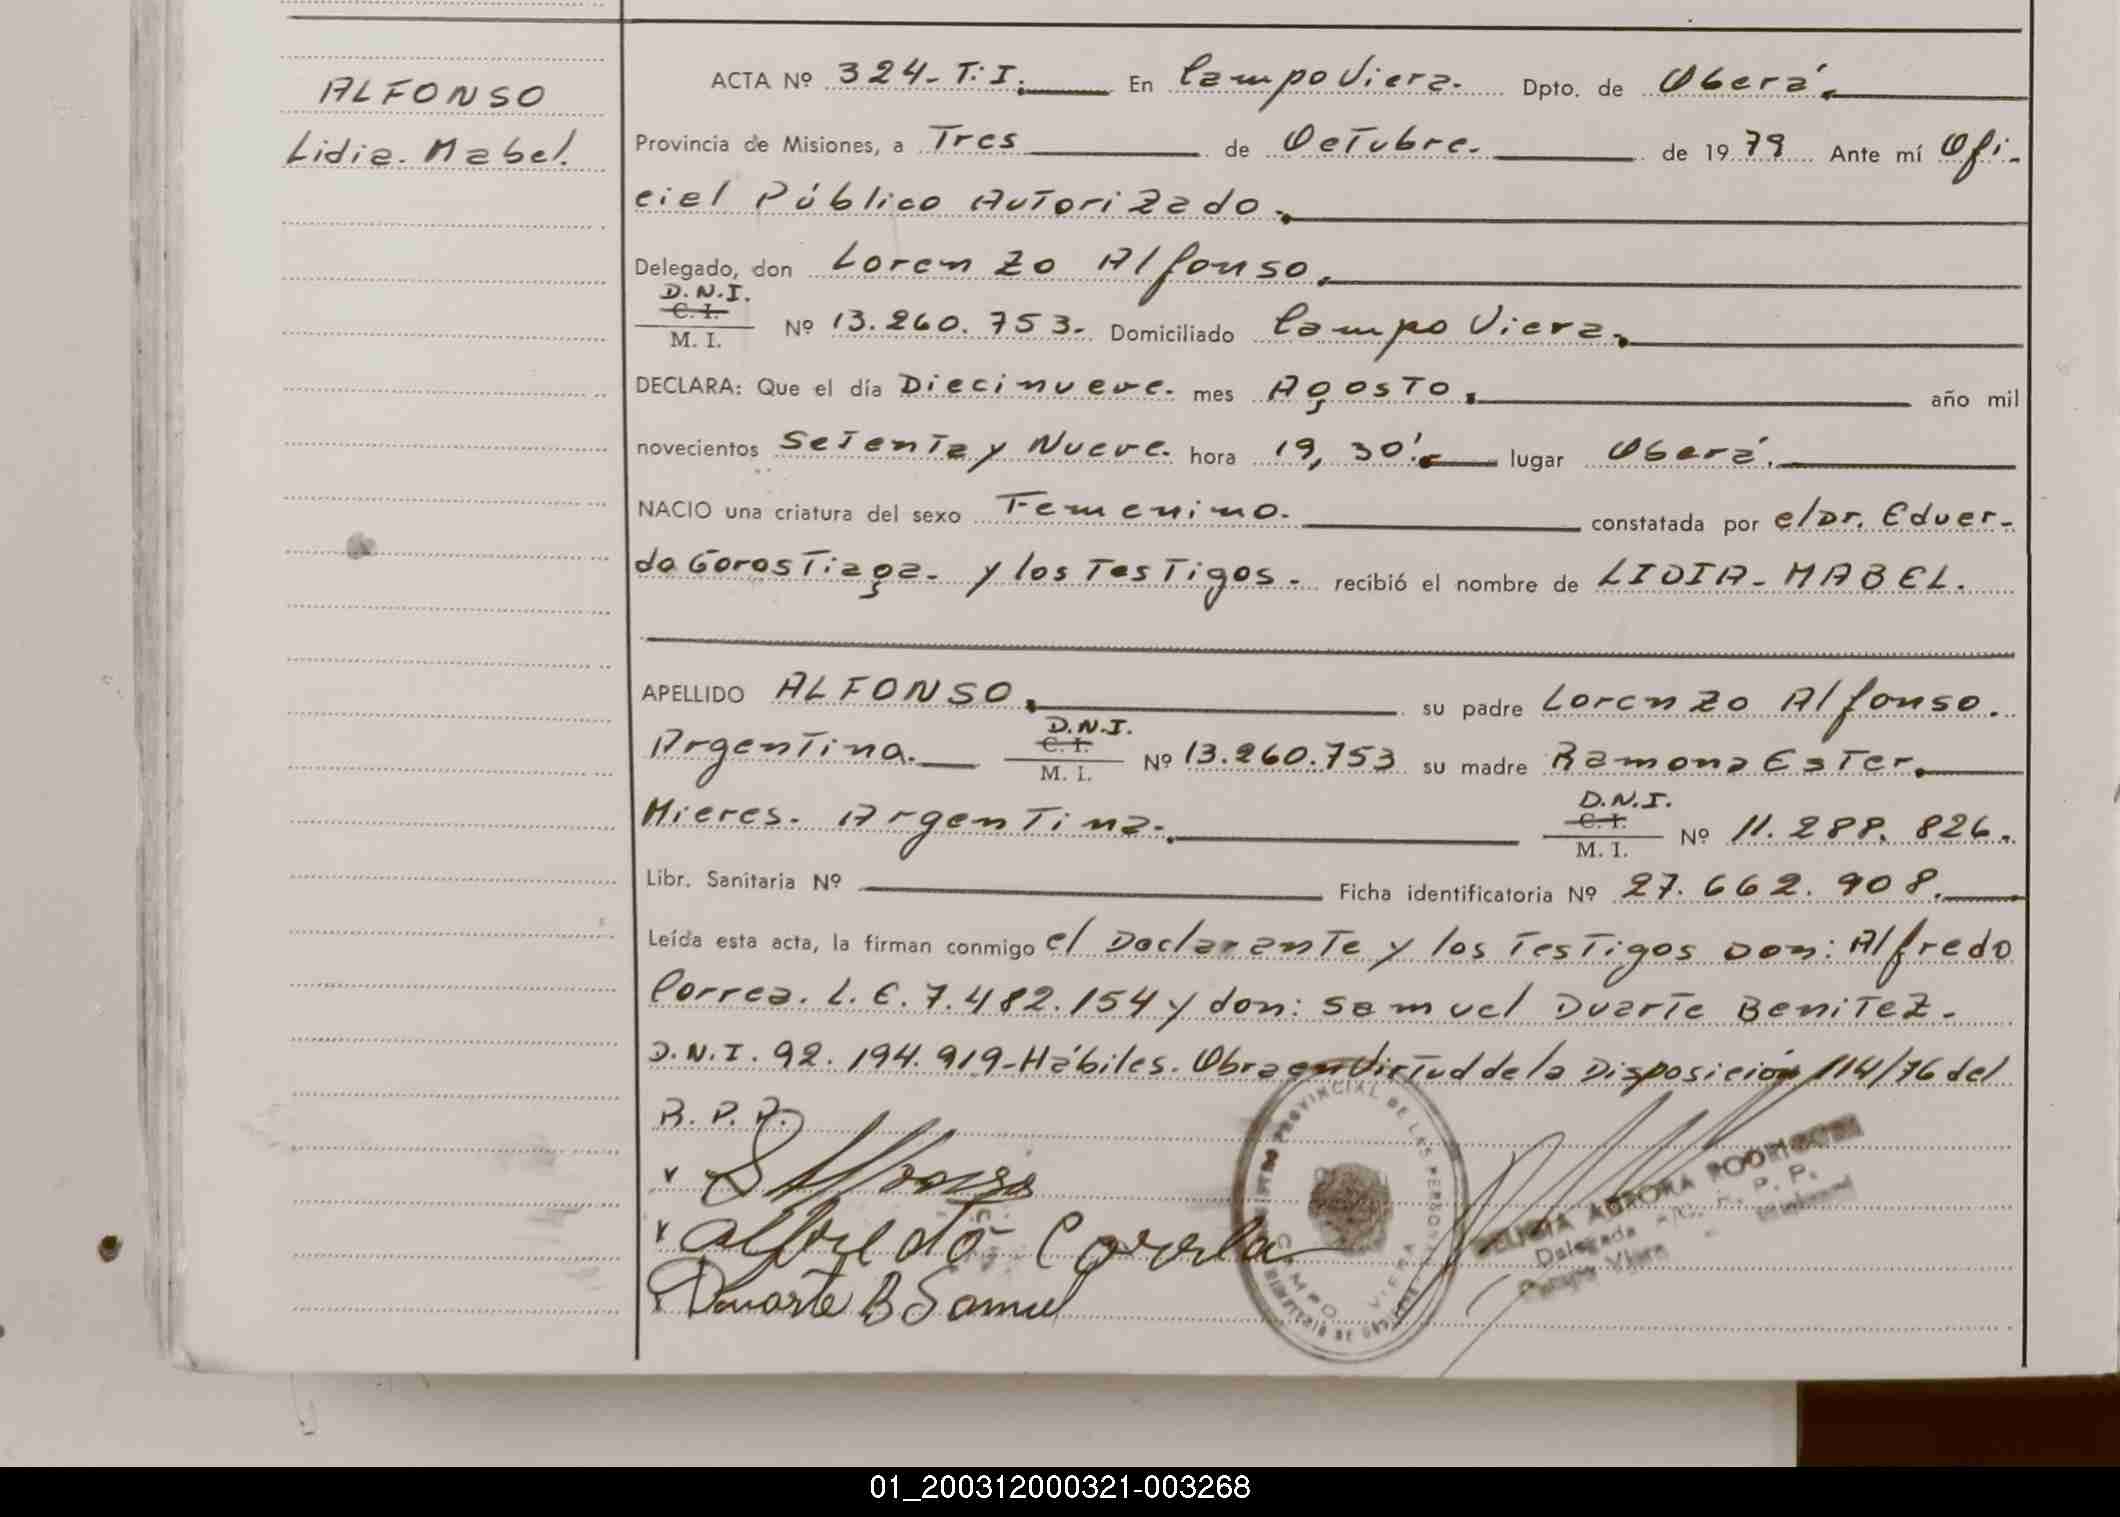 ALFONSO
Lidia. Mabel.
ACTA Nº 324- T. I. En Campo Viera. Dpto. de Oberá.
Provincia de Misiones, a Tres de Octubre. de 19 79 Ante mí Ofi-
cial Público Autorizado.
Delegado, don Lorenzo Alfonso.
D.N.I.
C. I.
M. I.
Nº 13.260.753- Domiciliado Campo Viera.
DECLARA: Que el día Diecinueve. mes Agosto. año mil
novecientos Setenta y Nueve. hora 19,30'. lugar Oberá.
NACIO una criatura del sexo Femenino. constatada por el Dr. Eduar-
do Gorostiaga. y los Testigos. recibió el nombre de LIDIA-MABEL.
APELLIDO ALFONSO. su padre Lorenzo Alfonso.
Argentina. D.N.I. C. I. M. I. Nº 13.260.753 su madre Ramona Ester.
Mieres. Argentina. D.N.I. C. I. M. I. Nº 11.288.826.
Libr. Sanitaria Nº Ficha identificatoria Nº 27.662.908.
Leída esta acta, la firman conmigo el Declarante y los Testigos Don: Alfredo
Correa. L.E. 7.482.154 y don: Samuel Duarte Benitez.
D.N.I. 92.194.919-Hábiles. Obra en Virtud de la Disposición 114/76 del
R.P.P.
Alfonso
Alfredo Correla
Duarte B Samuel
PROVINCIAL DE LAS PERSONAS
CAMPO VIERA
AURORA
Delegada R. P. P.
Campo Viera
01_200312000321-003268